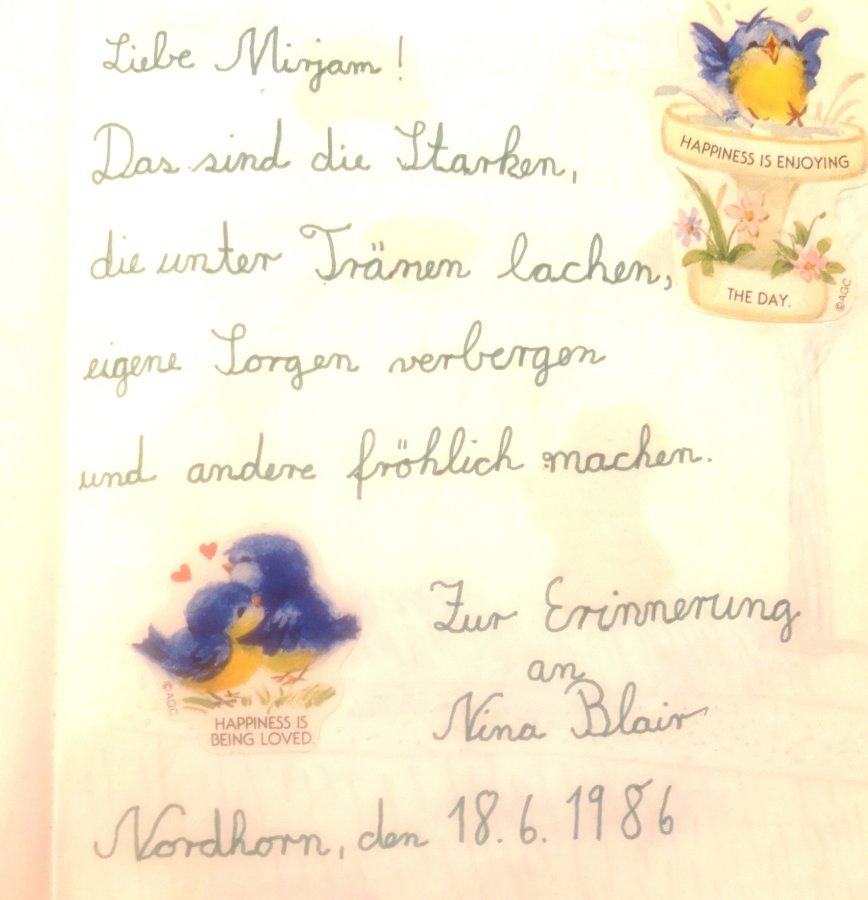 Liebe Mirjam!
HAPPINESS IS ENJOYING
THE DAY.
©AGC
Das sind die Starken,
die unter Tränen lachen,
eigene Sorgen verbergen
und andere fröhlich machen.
©AGC
HAPPINESS IS
BEING LOVED.
Zur Erinnerung
an
Nina Blair
Nordhorn, den 18.6.1986